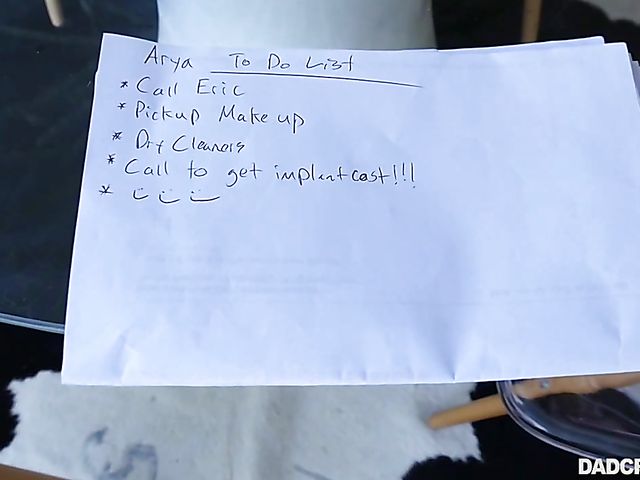 Arya To Do List
* Call Eric
* Pickup Make up
* Dry Cleaners
* Call to get implant cost!!!
*
DADCR